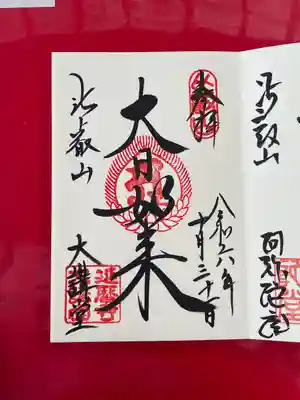 比叡山
阿弥陀堂
奉拝
令和六年
十月三十一日
大日如来
比叡山
大講堂